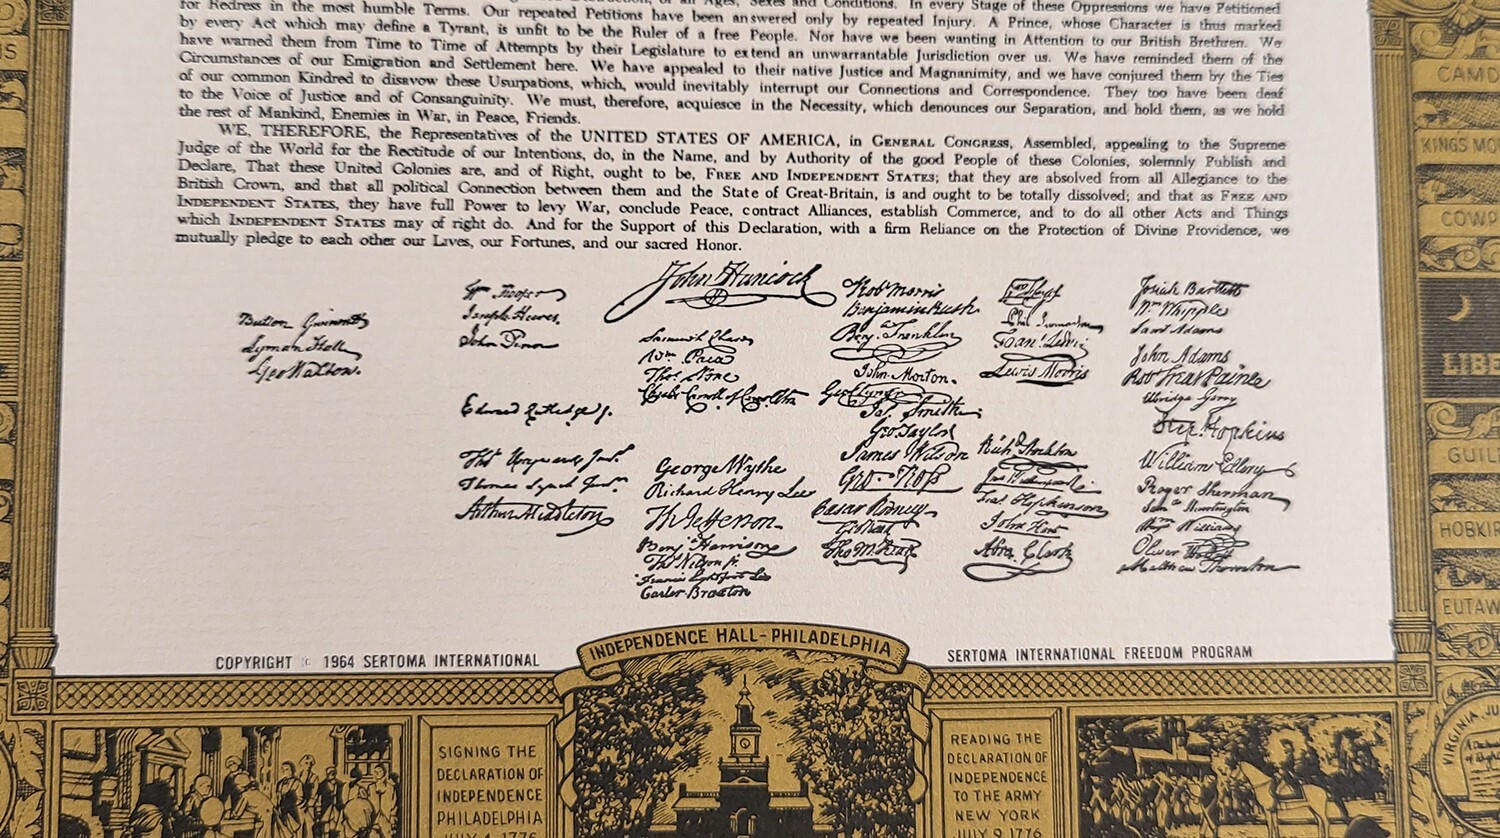 for Redress in the most humble Terms. Our repeated Petitions have been answered only by repeated Injury. A Prince, whose Character is thus marked
by every Act which may define a Tyrant, is unfit to be the Ruler of a free People. Nor have we been wanting in Attention to our British Brethren. We
have warned them from Time to Time of Attempts by their Legislature to extend an unwarrantable Jurisdiction over us. We have reminded them of the
Circumstances of our Emigration and Settlement here. We have appealed to their native Justice and Magnanimity, and we have conjured them by the Ties
of our common Kindred to disavow these Usurpations, which, would inevitably interrupt our Connections and Correspondence. They too have been deaf
to the Voice of Justice and of Consanguinity. We must, therefore, acquiesce in the Necessity, which denounces our Separation, and hold them, as we hold
the rest of Mankind, Enemies in War, in Peace, Friends.
WE, THEREFORE, the Representatives of the UNITED STATES OF AMERICA, in GENERAL CONGRESS, Assembled, appealing to the Supreme
Judge of the World for the Rectitude of our Intentions, do, in the Name, and by Authority of the good People of these Colonies, solemnly Publish and
Declare, That these United Colonies are, and of Right, ought to be, FREE AND INDEPENDENT STATES; that they are absolved from all Allegiance to the
British Crown, and that all political Connection between them and the State of Great-Britain, is and ought to be totally dissolved; and that as FREE AND
INDEPENDENT STATES, they have full Power to levy War, conclude Peace, contract Alliances, establish Commerce, and to do all other Acts and Things
which INDEPENDENT STATES may of right do. And for the Support of this Declaration, with a firm Reliance on the Protection of Divine Providence, we
mutually pledge to each other our Lives, our Fortunes, and our sacred Honor.
Button Gwinnett
Lyman Hall
Geo Walton.
Wm Hooper
Joseph Hewes,
John Penn
Edward Rutledge Jr.
Thos Heyward Junr.
Thomas Lynch Junr.
Arthur Middleton
John Hancock
Samuel Chase
Wm Paca
Thos Stone
Charles Carroll of Carrollton
George Wythe
Richard Henry Lee
Th Jefferson
Benj Harrison
Thos Nelson jr.
Francis Lightfoot Lee
Carter Braxton
Robt Morris
Benjamin Rush
Benj. Franklin
John Morton
Geo Clymer
Jas. Smith
Geo Taylor
James Wilson
Geo. Ross
Caesar Rodney
Geo Read
Tho M:Kean
Wm Floyd
Phil. Livingston
Frans. Lewis
Lewis Morris
Richd Stockton
Jno Witherspoon
Fras. Hopkinson
John Hart
Abra Clark
Josiah Bartlett
Wm Whipple
Saml Adams
John Adams
Robt Treat Paine
Elbridge Gerry
Step. Hopkins
William Ellery
Roger Sherman
Saml Huntington
Wm Williams
Oliver Wolcott
Matthew Thornton
COPYRIGHT © 1964 SERTOMA INTERNATIONAL
INDEPENDENCE HALL-PHILADELPHIA
SERTOMA INTERNATIONAL FREEDOM PROGRAM
SIGNING THE
DECLARATION OF
INDEPENDENCE
PHILADELPHIA
JULY 4, 1776
READING THE
DECLARATION OF
INDEPENDENCE
TO THE ARMY
NEW YORK
JULY 9, 1776
CAMD
KINGS MO
COWP
LIBE
GUILF
HOBKIR
EUTAW
VIRGINIA, JU